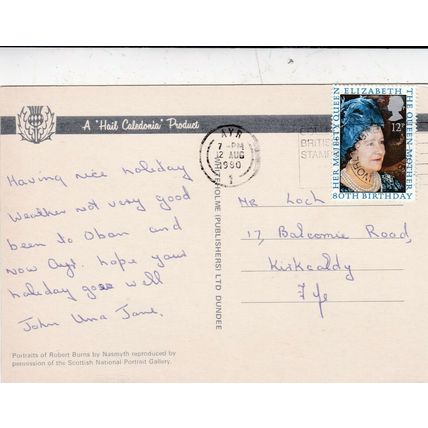 A "Hail Caledonia" Product
AYR
7 - PM
12 AUG
1980
1
BRITISH
STAMP
HER MAJESTY QUEEN ELIZABETH THE QUEEN MOTHER
12P
80TH BIRTHDAY
Having nice holiday
Weather not very good
been to Oban and
now Ayr. hope your
holiday goes well
John Una Jane.
WHITEHOLME (PUBLISHERS) LTD DUNDEE
Mr Loch
17, Balcomie Road,
Kirkcaldy
Fife
Portraits of Robert Burns by Nasmyth reproduced by
permission of the Scottish National Portrait Gallery.